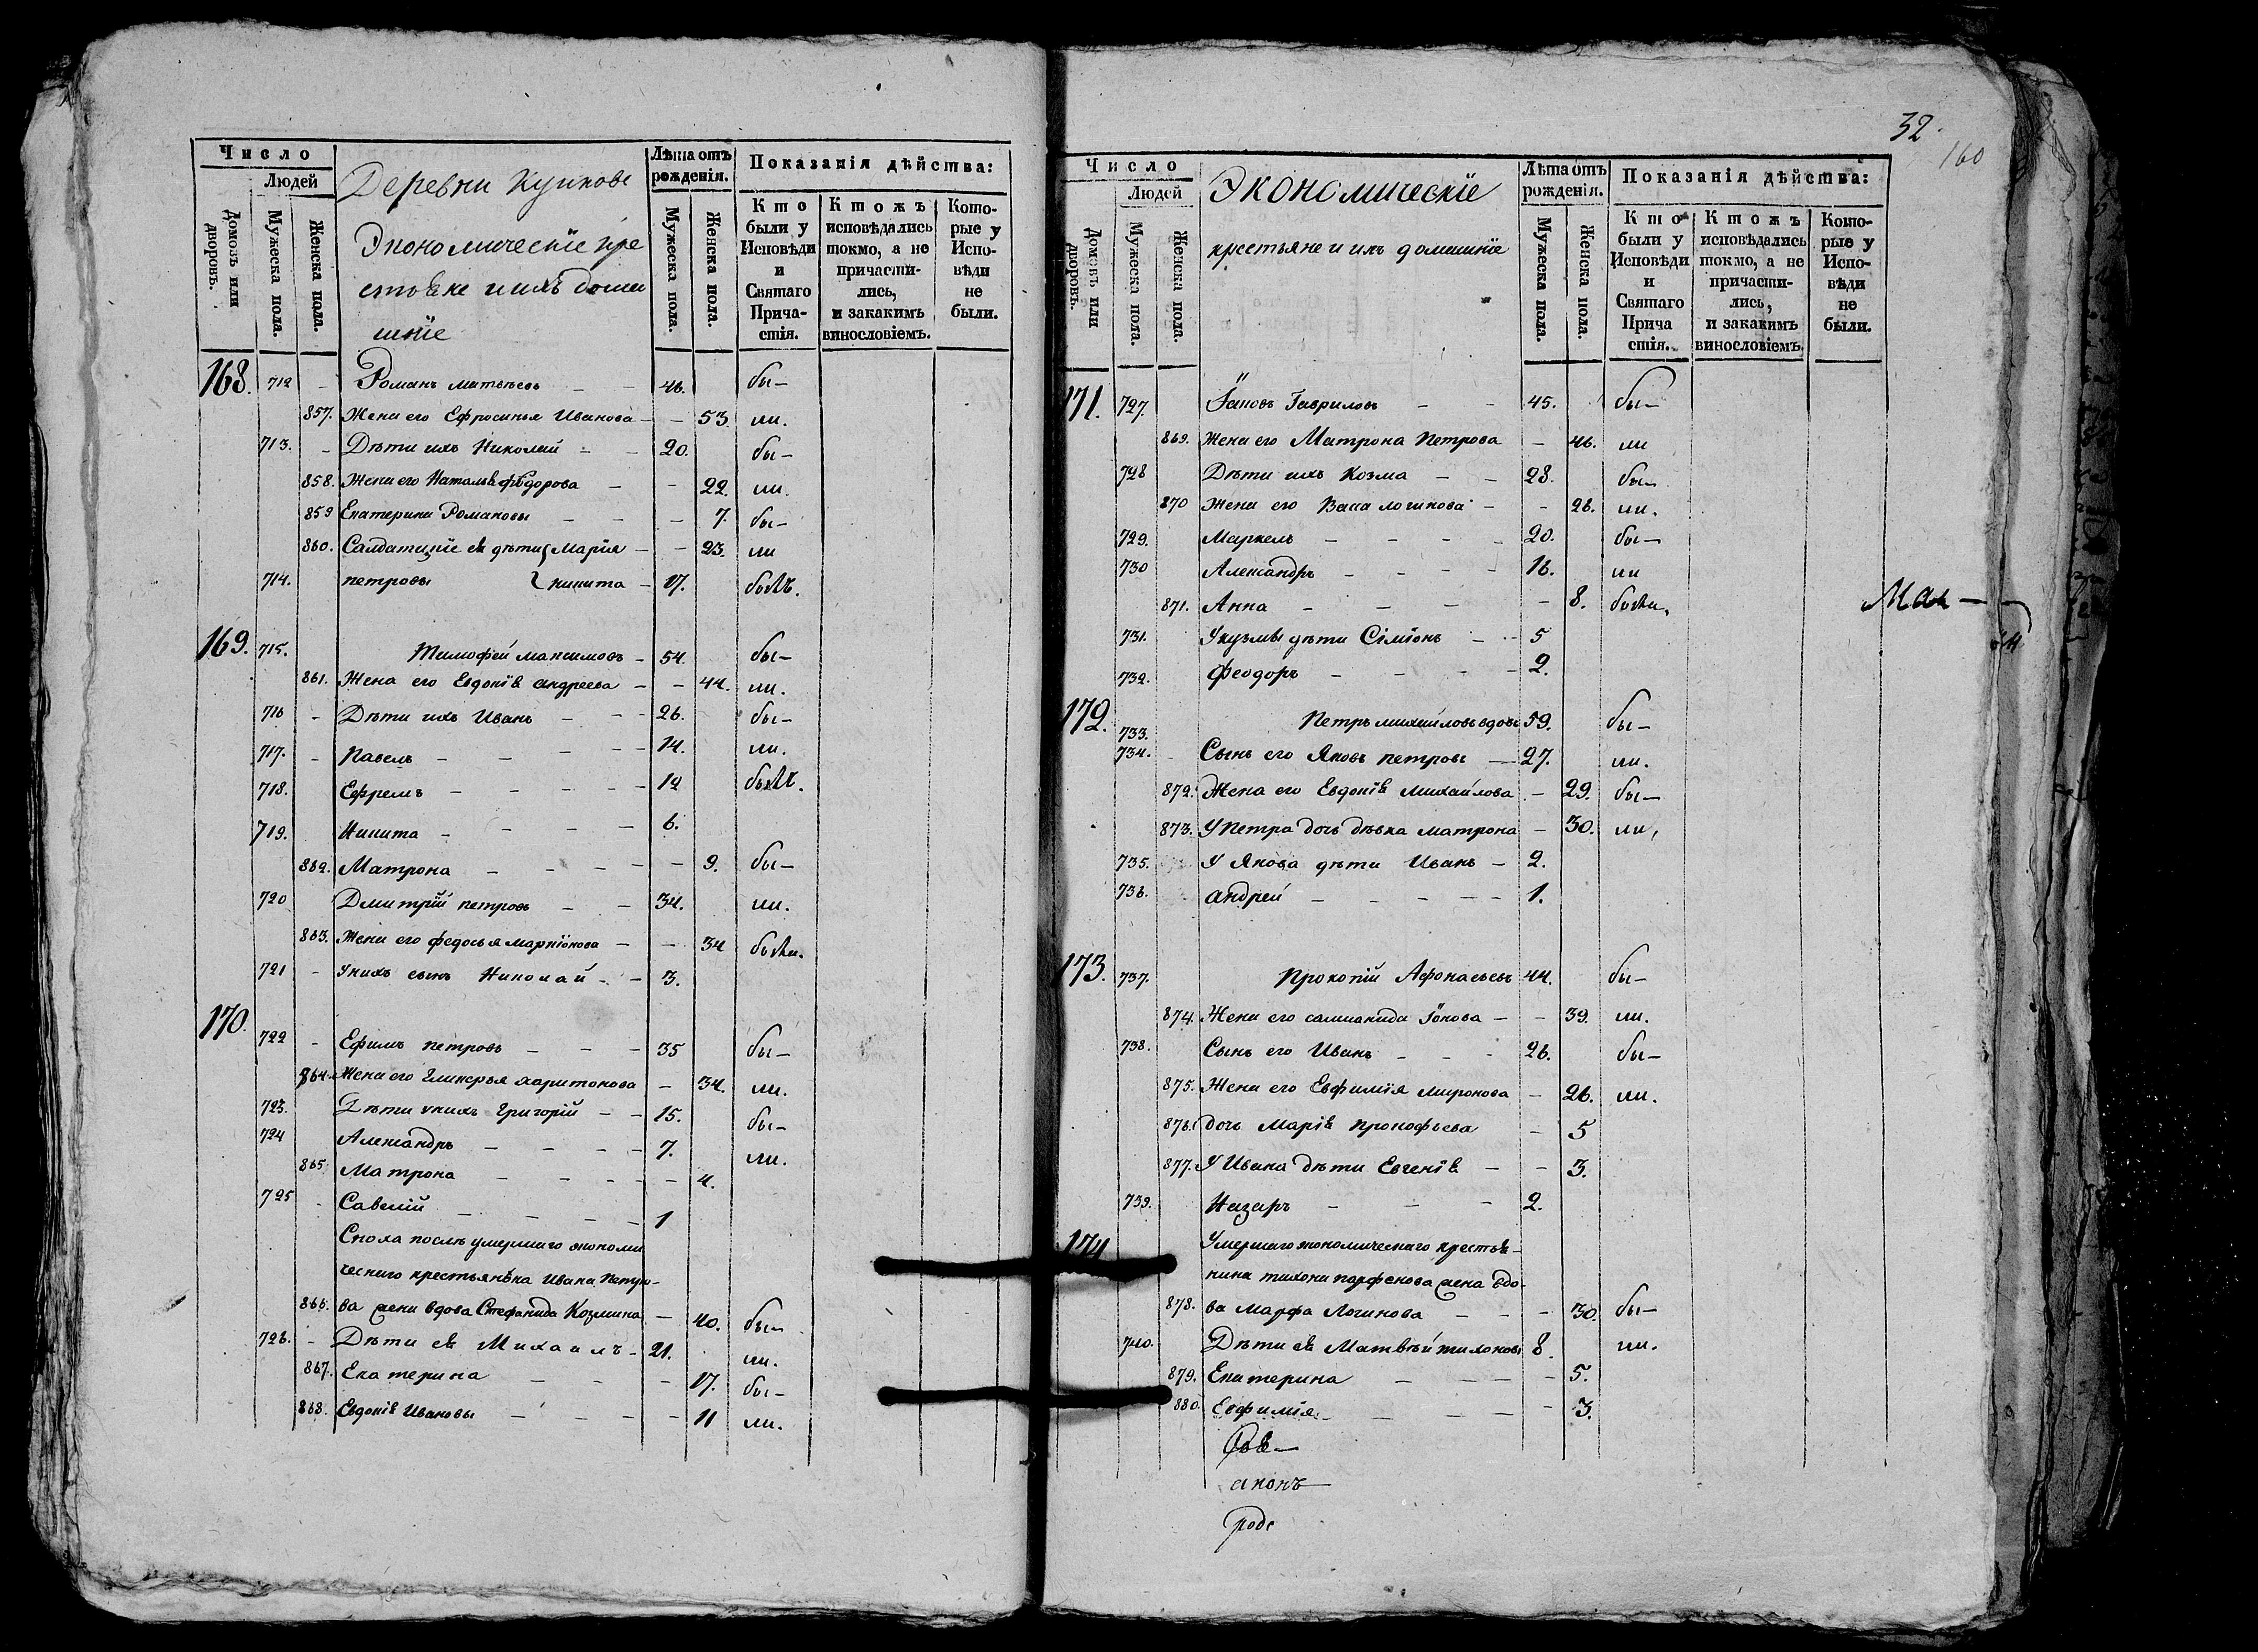 Число
Людей
Домовъ или дворовъ.
Мужеска пола.
Женска пола.
Деревни Куикове
Экономическїе кре
стьѧне и ихъ домаш
шнїе
Лѣта отъ рожденія.
Мужеска пола.
Женска пола.
Показанія дѣйства:
Кто были у Исповѣди и Святаго Причастія.
Ктожъ исповѣдались токмо, а не причастились, и закакимъ винословіемъ.
Которые у Исповѣди не были.
168. 712 - Романъ матвѣевъ - - 46. бы-
857. Жена его Ефросинья Иванова - - 53. ли.
713. - Дѣти ихъ Николай - - 20. бы-
858. Жена его Наталья Фѣдорова - - 22. ли.
859 Екатерина Романовы - - - 7. бы-
860. Салдатцкїе дѣти Марїя - - 23. ли
714. петровы никита - 17. былъ.
169. 715. Тимофей максимовъ - 54. бы-
861. Жена его Евдокїѧ андреева - - 44. ли.
716 - Дѣти ихъ Иванъ - - - 26. бы-
717. - Павелъ - - - - - 14. ли.
718. Ефремъ - - - - - 12 былъ.
719. Никита - - - - 6.
862. Матрона - - - - - 9. бы-
720 Дмитрїй петровъ - - 34. ли.
863. Жена его федосья маркїонова - - 34 были.
721 - Унихъ сынъ Николай - - 3.
170. 722 - Ефимъ петровъ - - - 35 бы-
864. Жена его Гликерья харитонова - 34. ли.
723. Дѣти унихъ Григорїй - - 15. бы-
724 Александръ - - - - 7. ли.
865. Матрона - - - - - 4.
725 - Савелїй - - - - 1
Сноха послѣ умершаго экономи
ческаго крестьянина Ивана Петро-
866. ва жена вдова Стефанида Козмина - 40. бы-
726. - Дѣти еѧ Михаилъ - 21. ли.
867. Екатерина - - - 17. бы-
868. Евдокїѧ Ивановы - - - - 11 ли.
32.
160
Число
Людей
Домовъ или дворовъ.
Мужеска пола.
Женска пола.
Экономическїе
крестьяне и ихъ домашнїе
Лѣта отъ рожденія.
Мужеска пола.
Женска пола.
Показанія дѣйства:
Кто были у Исповѣди и Святаго Прича стія.
Ктожъ исповѣдались токмо, а не причастились, и закакимъ винословіемъ
Которые у Исповѣди не были.
171. 727. Їаковъ Гавриловъ - - 45. бы-
869. Жена его Матрона Петрова - 46. ли
728 Дѣти ихъ Козма - - 28. бы-
870 Жена его Васа логинова - - 26. ли.
729. Маркелъ - - - - 20. бы-
730 Александръ - - - - 16. ли
871. Анна - - - - 8. были,
731. Укузмы дѣти Сімїонъ - - 5
732. феодоръ - - - - 2.
Мал-
172. 733. Петръ михайловъ вдовъ 59. бы-
734. - Сынъ его Яковъ петровъ - 27. ли.
872. Жена его Евдокїѧ михайлова - 29. бы-
873. УПетра дочь дѣвка матрона - 30. ли,
735. У Якова дѣти Иванъ - 2.
736. андрей - - - - - 1.
173. 737. Прокопїй Афонасьевъ 44. бы-
874. Жена его самианида Їонова - - 39. ли.
738. Сынъ его Иванъ - - - 26. бы-
875. Жена его Евфимїя миронова - 26. ли.
876. дочь Марїѧ прокофьева - 5
877. УИвана дѣти Евгенїѧ - - 3.
739. Назаръ - - - 2.
174 Умершаго экономическаго крестьѧ-
нина тихона парфенова жена вдо-
878. ва Марфа Логинова - - - 30. бы-
740. Дѣти еѧ Матвѣй тихоновы 8. ли.
879. Екатерина - - - - 5.
880. Евфимїя - - - - 3.
аконъ-